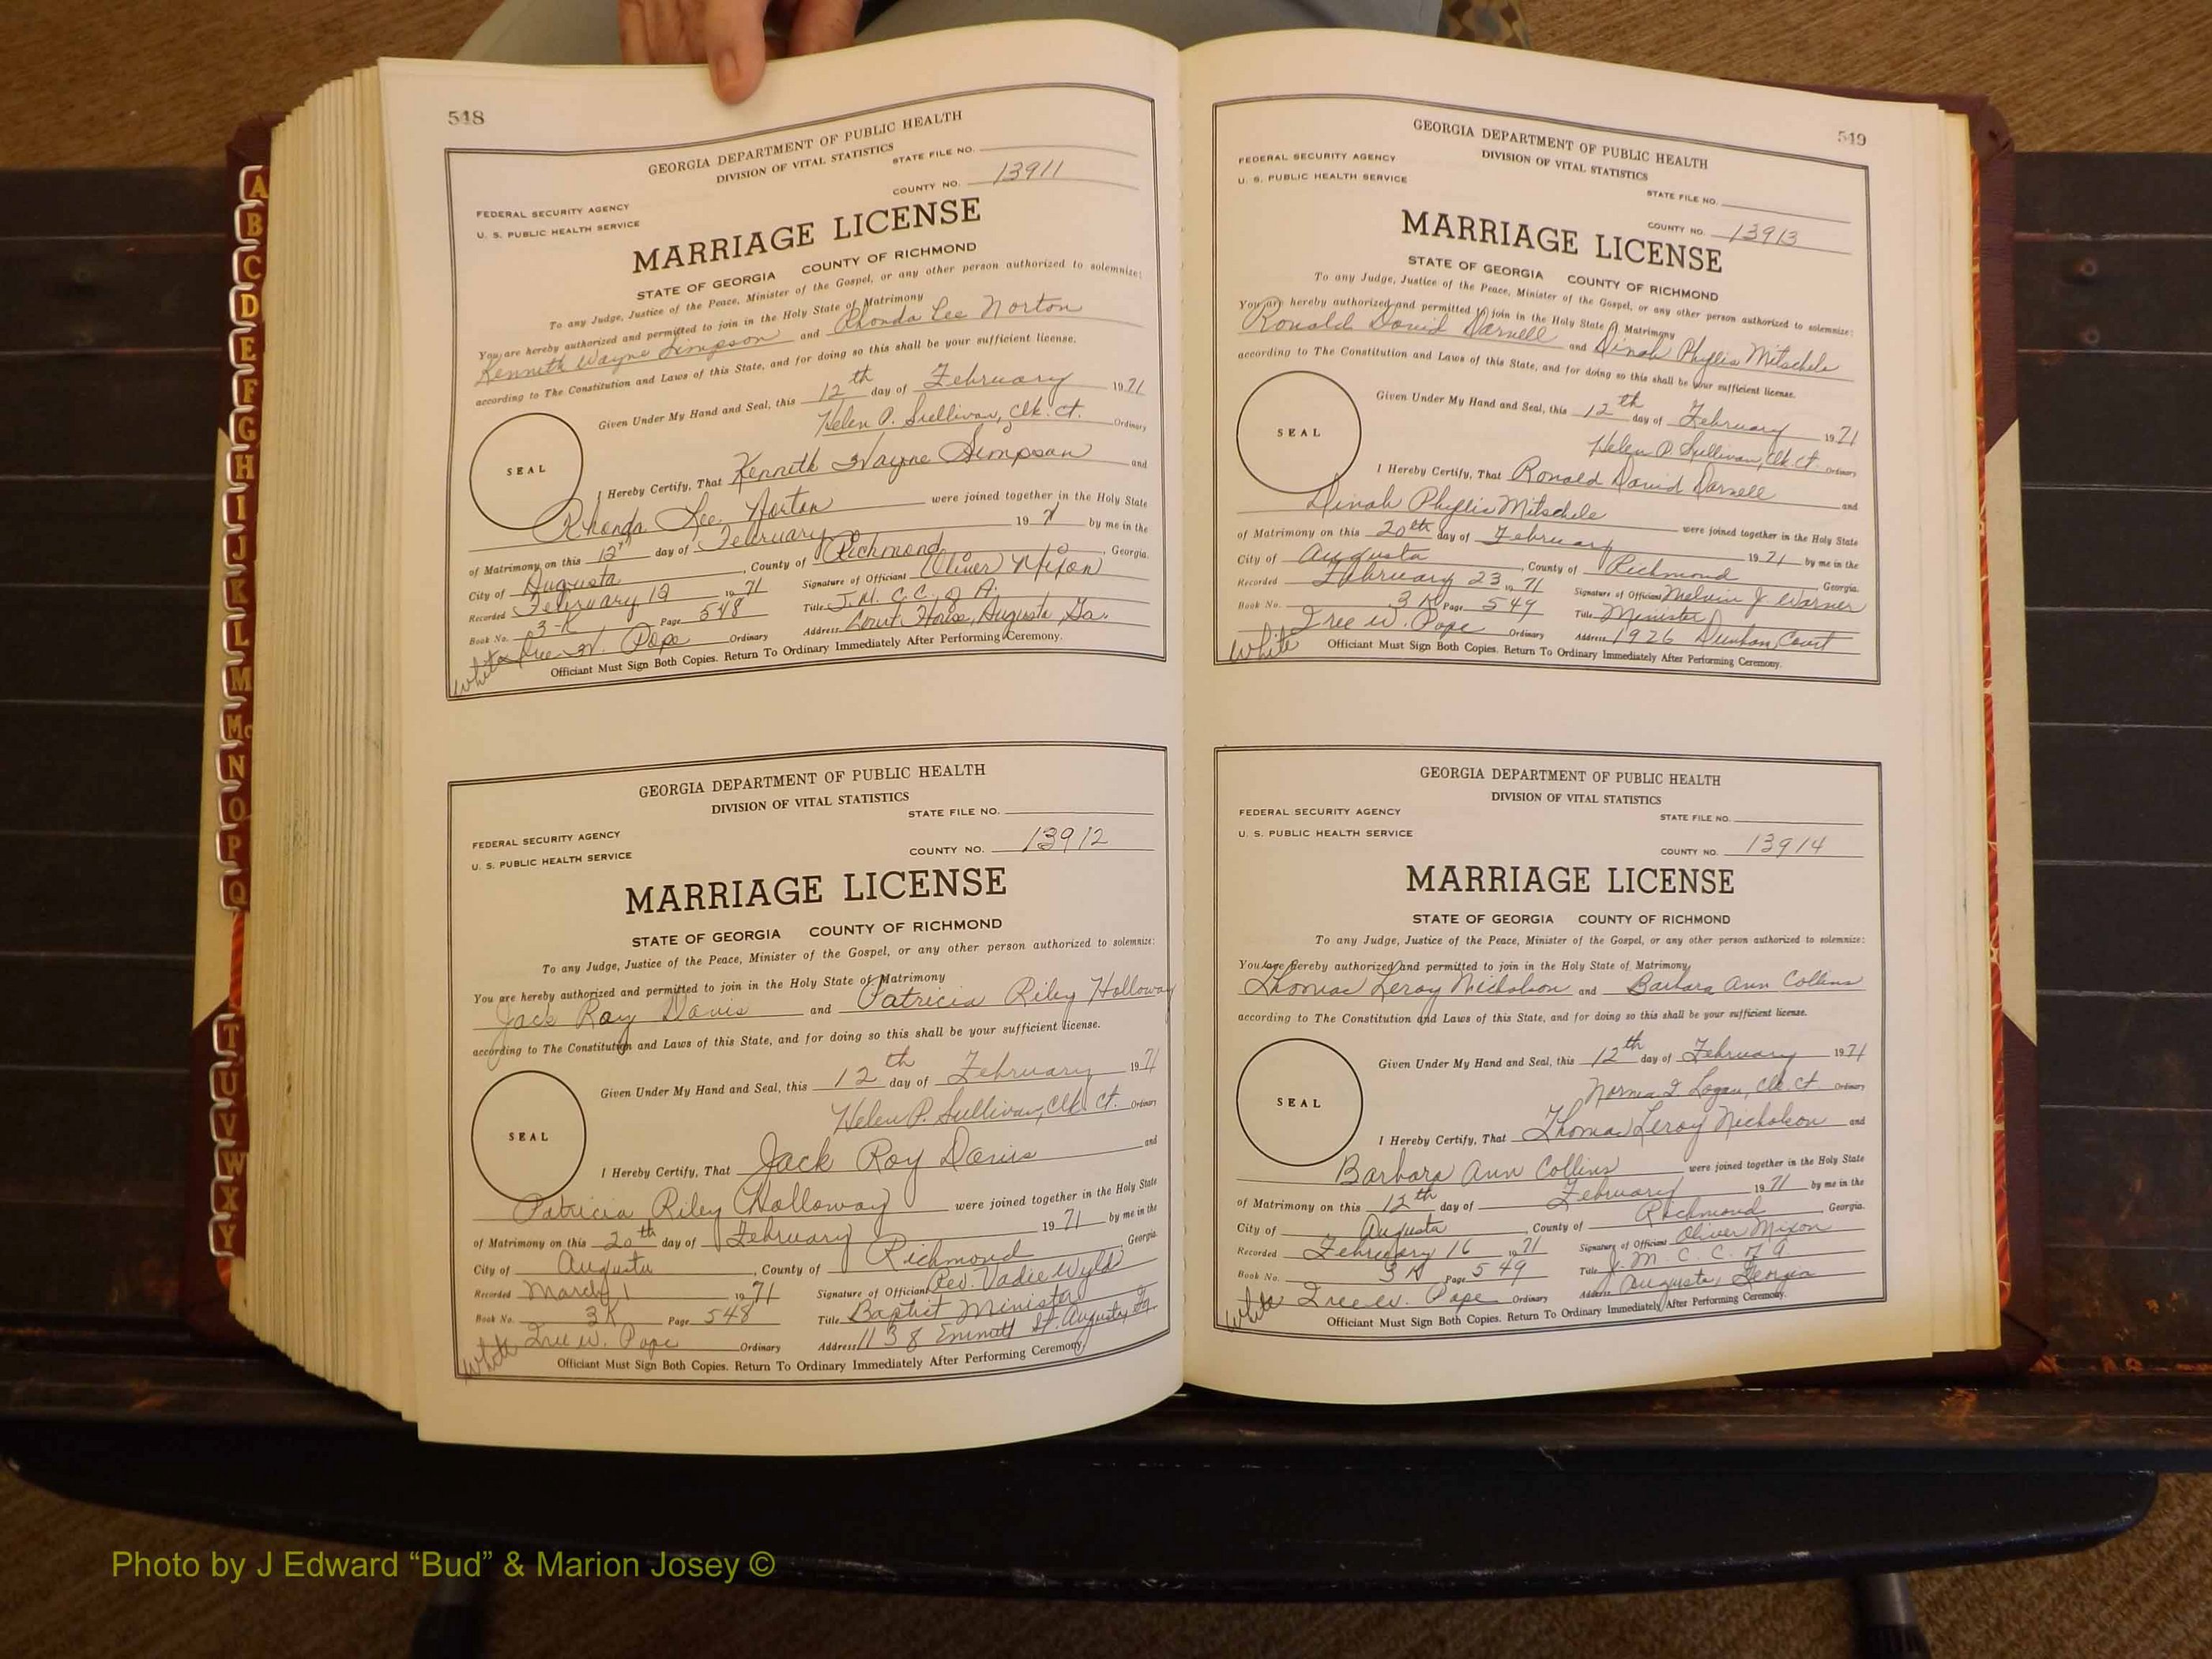 548
GEORGIA DEPARTMENT OF PUBLIC HEALTH
DIVISION OF VITAL STATISTICS
STATE FILE NO.
COUNTY NO. 13911
FEDERAL SECURITY AGENCY
U. S. PUBLIC HEALTH SERVICE
MARRIAGE LICENSE
STATE OF GEORGIA COUNTY OF RICHMOND
To any Judge, Justice of the Peace, Minister of the Gospel, or any other person authorized to solemnize:
You are hereby authorized and permitted to join in the Holy State of Matrimony
Kenneth Wayne Simpson and Rhonda Lee Norton
according to The Constitution and Laws of this State, and for doing so this shall be your sufficient license.
Given Under My Hand and Seal, this 12th day of February 1971
Helen P. Sullivan, Clk. Ct. Ordinary
SEAL
I Hereby Certify, That Kenneth Wayne Simpson and
Rhonda Lee Norton were joined together in the Holy State
of Matrimony on this 12th day of February 1971 by me in the
City of Augusta, County of Richmond, Georgia.
Recorded February 12 1971 Signature of Officiant Oliver Mixon
Book No. 3-K Page 548 Title J.M.C.C. of A.
Ordinary Address Court House, Augusta Ga.
Pope
White
Officiant Must Sign Both Copies. Return To Ordinary Immediately After Performing Ceremony.
GEORGIA DEPARTMENT OF PUBLIC HEALTH
DIVISION OF VITAL STATISTICS
STATE FILE NO.
FEDERAL SECURITY AGENCY
U. S. PUBLIC HEALTH SERVICE
COUNTY NO. 13912
MARRIAGE LICENSE
STATE OF GEORGIA COUNTY OF RICHMOND
To any Judge, Justice of the Peace, Minister of the Gospel, or any other person authorized to solemnize:
You are hereby authorized and permitted to join in the Holy State of Matrimony
Jack Roy Davis and Patricia Riley Holloway
according to The Constitution and Laws of this State, and for doing so this shall be your sufficient license.
Given Under My Hand and Seal, this 12th day of February 1971
Helen P. Sullivan, Clk. Ct. Ordinary
SEAL
I Hereby Certify, That Jack Roy Davis and
Patricia Riley Holloway were joined together in the Holy State
of Matrimony on this 20th day of February 1971 by me in the
City of Augusta, County of Richmond Georgia.
Recorded March 1 1971 Signature of Officiant Rev. Vadie Wylds
Book No. 3K Page 548 Title Baptist Minister
White W. Pope Ordinary Address 1138 Emmett St. Augusta, Ga.
Officiant Must Sign Both Copies. Return To Ordinary Immediately After Performing Ceremony.
549
GEORGIA DEPARTMENT OF PUBLIC HEALTH
DIVISION OF VITAL STATISTICS
FEDERAL SECURITY AGENCY
U. S. PUBLIC HEALTH SERVICE
STATE FILE NO.
COUNTY NO. 13913
MARRIAGE LICENSE
STATE OF GEORGIA COUNTY OF RICHMOND
To any Judge, Justice of the Peace, Minister of the Gospel, or any other person authorized to solemnize:
You are hereby authorized and permitted to join in the Holy State of Matrimony
Ronald David Darnell and Dinah Phyllis Mitschele
according to The Constitution and Laws of this State, and for doing so this shall be your sufficient license.
Given Under My Hand and Seal, this 12th day of February 1971
Helen P. Sullivan, Clk. Ct. Ordinary
SEAL
I Hereby Certify, That Ronald David Darnell and
Dinah Phyllis Mitschele were joined together in the Holy State
of Matrimony on this 20th day of February 1971 by me in the
City of Augusta, County of Richmond Georgia.
Recorded February 23 1971 Signature of Officiant Melvin J. Warner
Book No. 3K Page 549 Title Minister
W. Pope Ordinary Address 1926 Dunham Court
White
Officiant Must Sign Both Copies. Return To Ordinary Immediately After Performing Ceremony.
GEORGIA DEPARTMENT OF PUBLIC HEALTH
DIVISION OF VITAL STATISTICS
FEDERAL SECURITY AGENCY
U. S. PUBLIC HEALTH SERVICE
STATE FILE NO.
COUNTY NO. 13914
MARRIAGE LICENSE
STATE OF GEORGIA COUNTY OF RICHMOND
To any Judge, Justice of the Peace, Minister of the Gospel, or any other person authorized to solemnize:
You are hereby authorized and permitted to join in the Holy State of Matrimony
Thomas Leroy Nicholson and Barbara Ann Collins
according to The Constitution and Laws of this State, and for doing so this shall be your sufficient license.
Given Under My Hand and Seal, this 12th day of February 1971
Norma I. Logan, Clk. Ct Ordinary
SEAL
I Hereby Certify, That Thomas Leroy Nicholson and
Barbara Ann Collins were joined together in the Holy State
of Matrimony on this 12th day of February 1971 by me in the
City of Augusta, County of Richmond Georgia.
Recorded February 16 1971 Signature of Officiant Oliver Mixon
Book No. 3K Page 549 Title J.M.C.C. of A
White W. Pope Ordinary Address Augusta, Georgia
Officiant Must Sign Both Copies. Return To Ordinary Immediately After Performing Ceremony.
A
B
C
D
E
F
G
H
I
J
K
L
M
Mc
N
O
P
Q
T
U
V
W
X
Y
Photo by J Edward “Bud” & Marion Josey ©